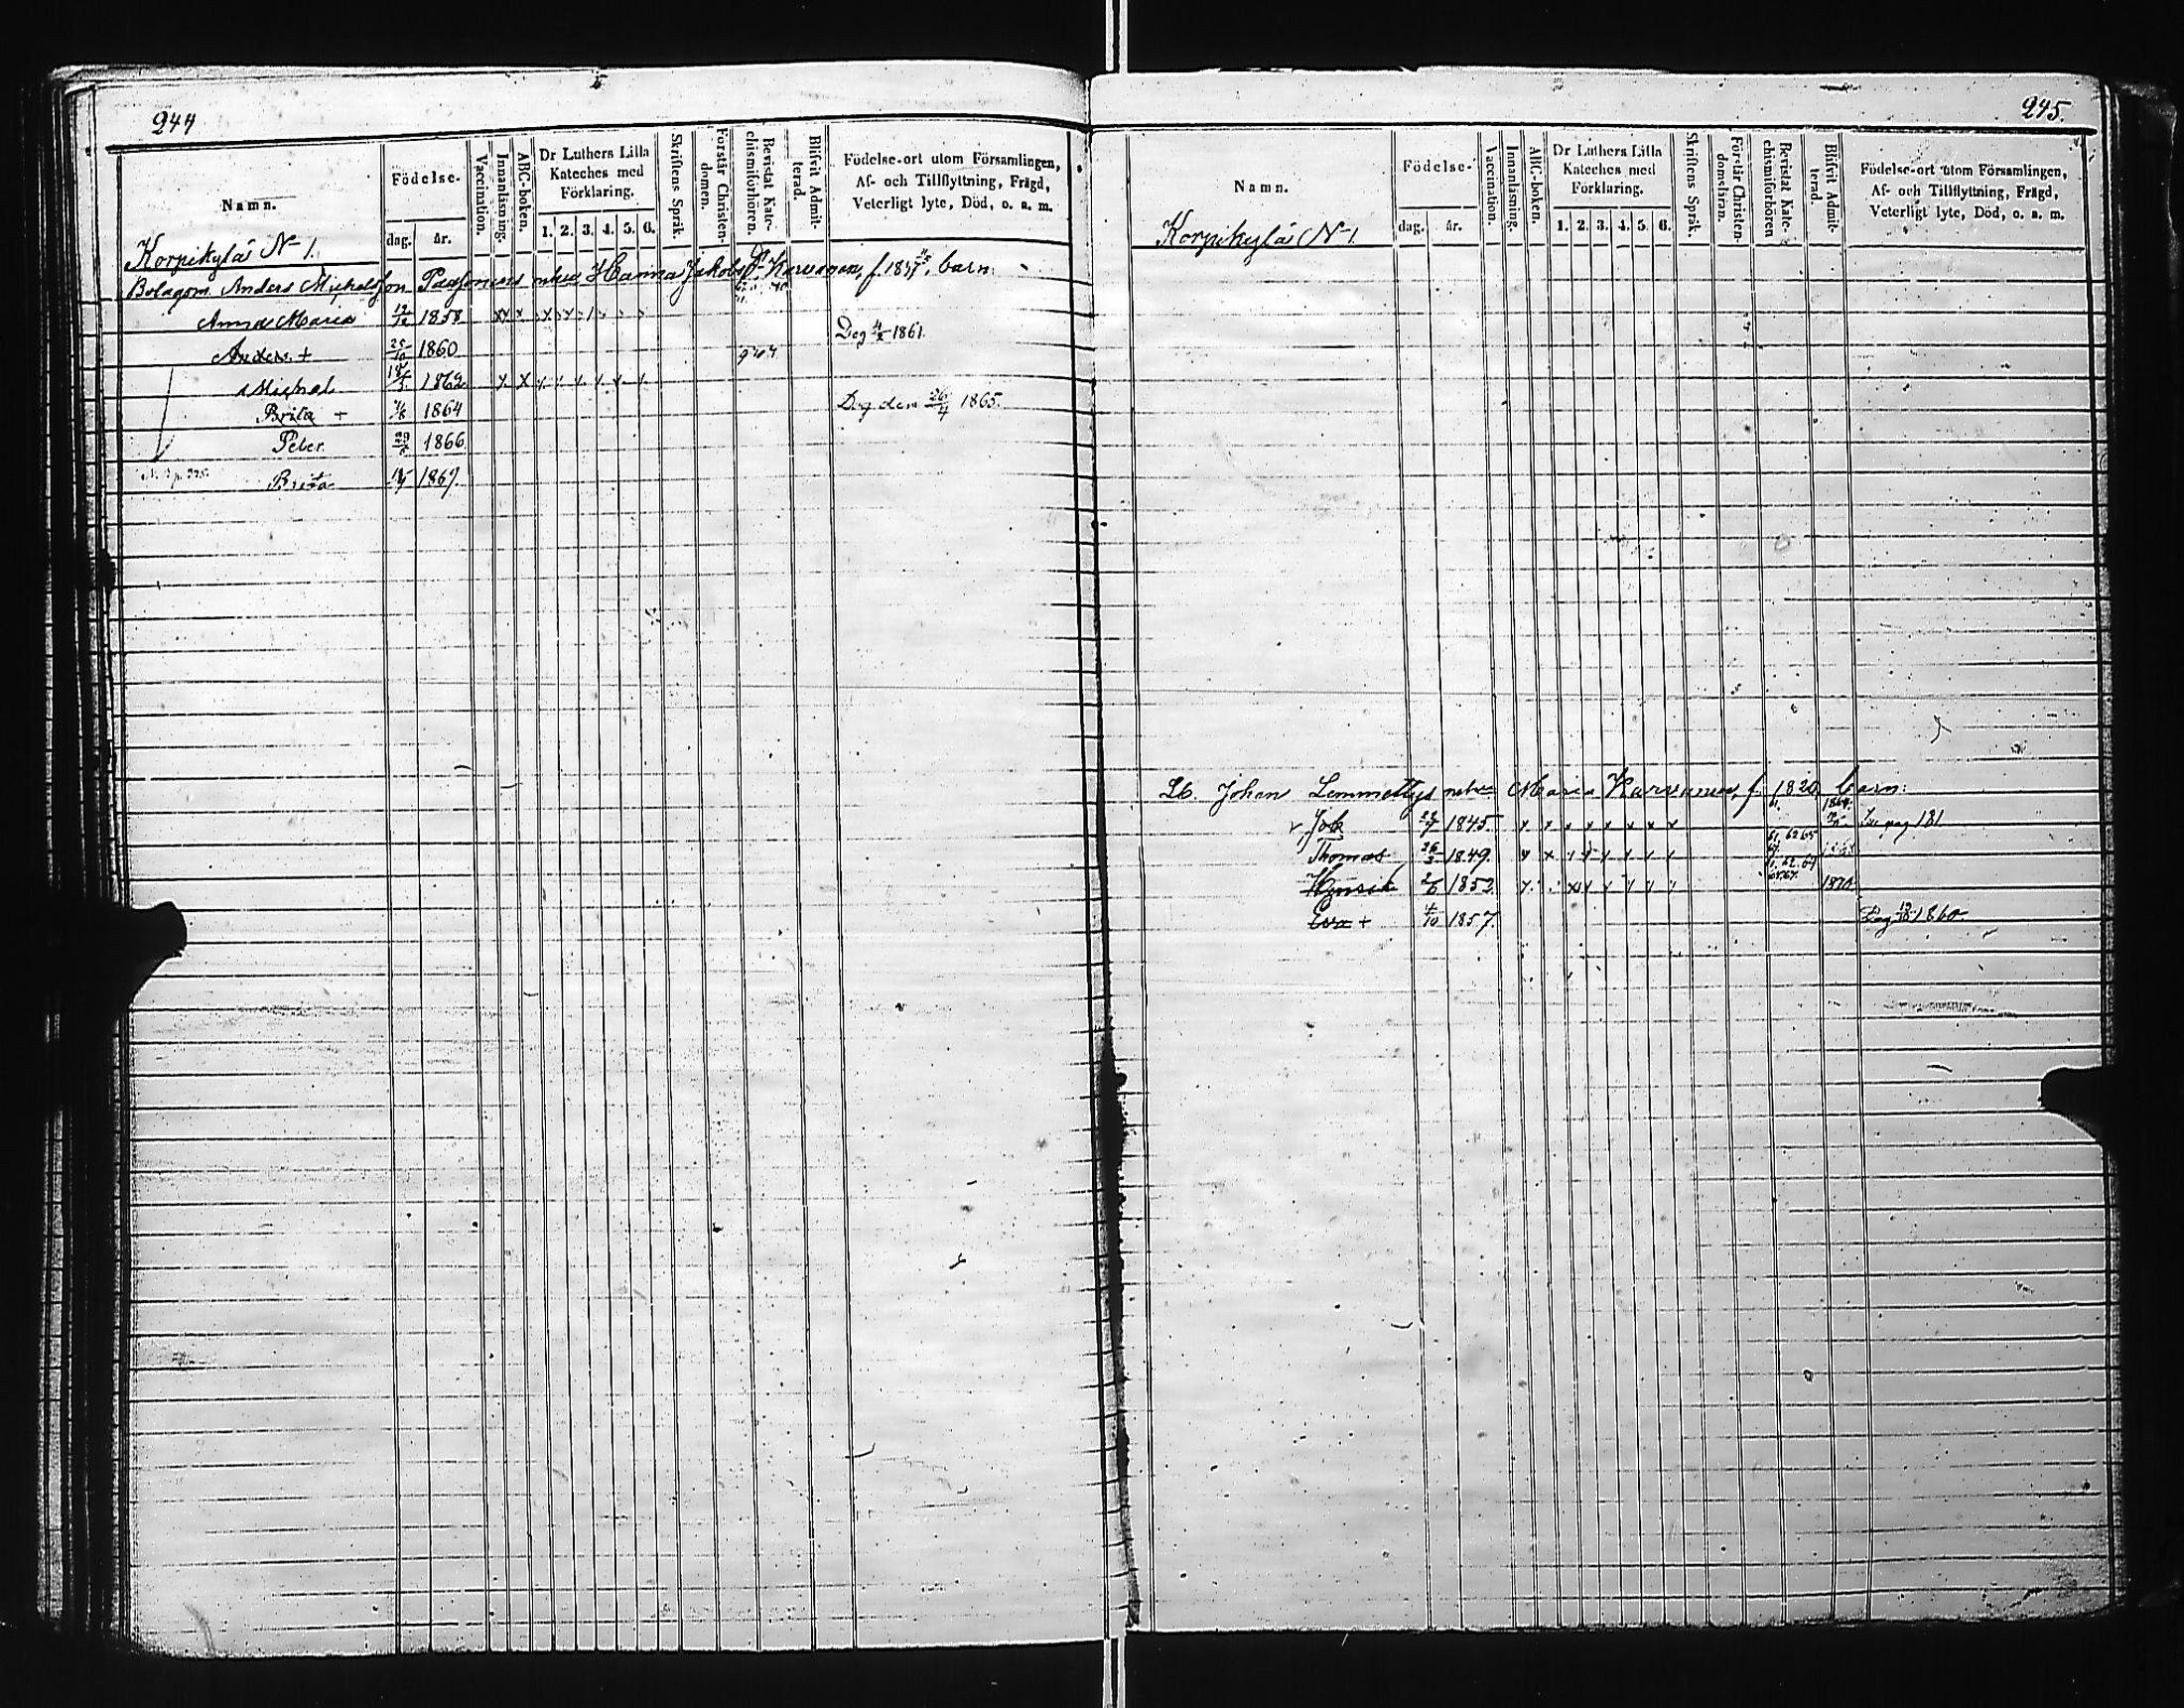 244
Namn.
Födelse-
dag.
år.
Vaccination.
Innanläsning.
ABC-boken.
Dr Luthers Lilla
Kateches med
Förklaring.
1. 2. 3. 4. 5. 6.
Skriftens Språk.
Förstår Christen-
domen.
Bevistat Kate-
chismiförhören.
Blifvit Admit-
terad.
Födelse-ort utom Församlingen,
Af- och Tillflyttning, Frägd,
Veterligt lyte, Död, o. s. m.
Korpikylä N 1.
Bolagom. Anders Michelsson hustru Hanna Jakobs Karvonen, f. barn:
Anna Maria 12/12 1858 x x x
Anders + 25/10 1860 Dog 1861.
Michel 1862 x x
Brita + 1864 Dog den 26/4 1865.
Peter 1866
Brita 1867.
245.
Namn.
Födelse-
dag.
år.
Vaccination.
Innanläsning.
ABC-boken.
Dr Luthers Lilla
Kateches med
Förklaring.
1. 2. 3. 4. 5. 6.
Skriftens Språk.
Förstår Christen-
domsläran.
Bevistat Kate-
chismiförhören
Blifvit Admit-
terad.
Födelse-ort utom Församlingen,
Af- och Tillflyttning, Frägd,
Veterligt lyte, Död, o. s. m.
Korpikylä N 1.
Johan Lemmettys Maria Karvonen, f. 1820, barn:
Job 1845. x x x x x x x x 1864 Se pag 181
Thomas 26/3 1849. x x
1852 1870
Eva + 4/10 1857. Dog 1860.